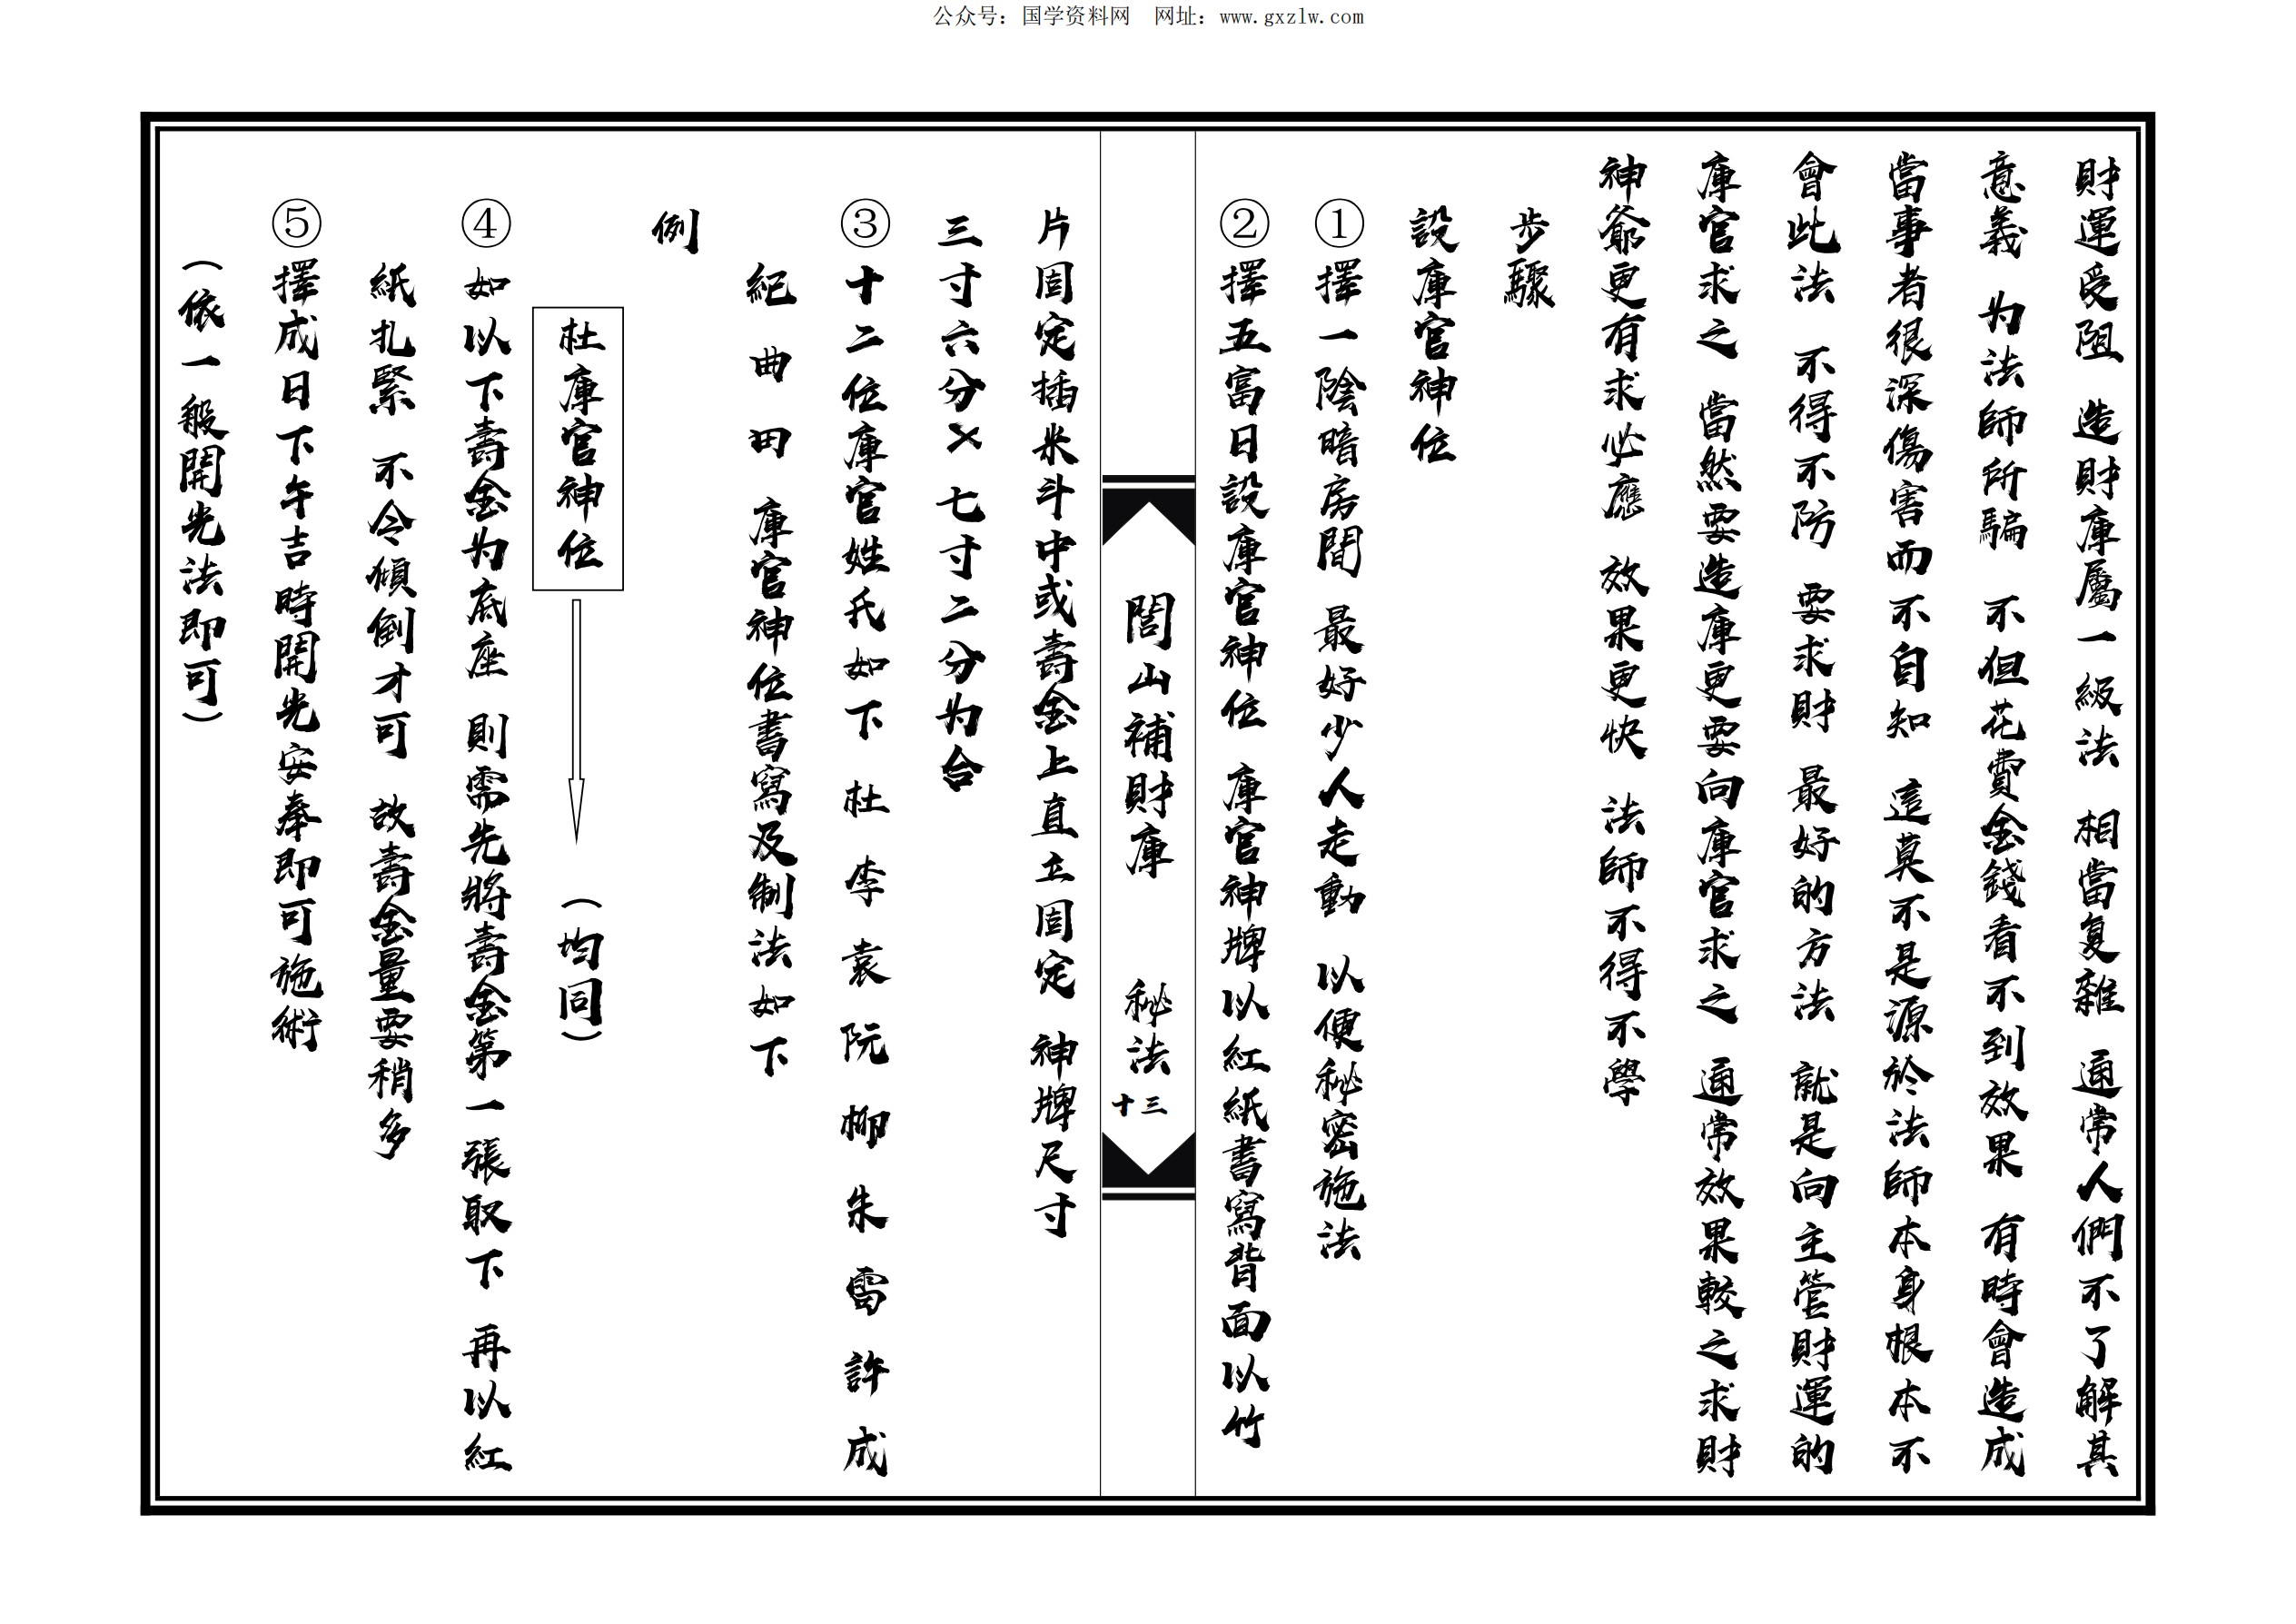 公众号：国学资料网　网址：www.gxzlw.com
財運受阻　造財庫屬一級法　相當复雜　通常人們不了解其
意義　为法師所騙　不但花費金錢看不到效果　有時會造成
當事者很深傷害而不自知　這莫不是源於法師本身根本不
會此法　不得不防　要求財　最好的方法　就是向主管財運的
庫官求之　當然要造庫更要向庫官求之　通常效果較之求財
神爺更有求必應　效果更快　法師不得不學
步驟
設庫官神位
①擇一陰暗房間　最好少人走動　以便秘密施法
②擇五富日設庫官神位　庫官神牌以紅紙書寫背面以竹
閭山補財庫　秘法
十三
片固定插米斗中或壽金上直立固定　神牌尺寸
三寸六分×七寸二分为合
③十二位庫官姓氏如下　杜　李　袁　阮　柳　朱　雷　許　成
紀　曲　田　庫官神位書寫及制法如下
例
杜庫官神位　（均同）
④如以下壽金为底座　則需先將壽金第一張取下　再以紅
紙扎緊　不令傾倒才可　故壽金量要稍多
⑤擇成日下午吉時開光安奉即可施術
（依一般開光法即可）